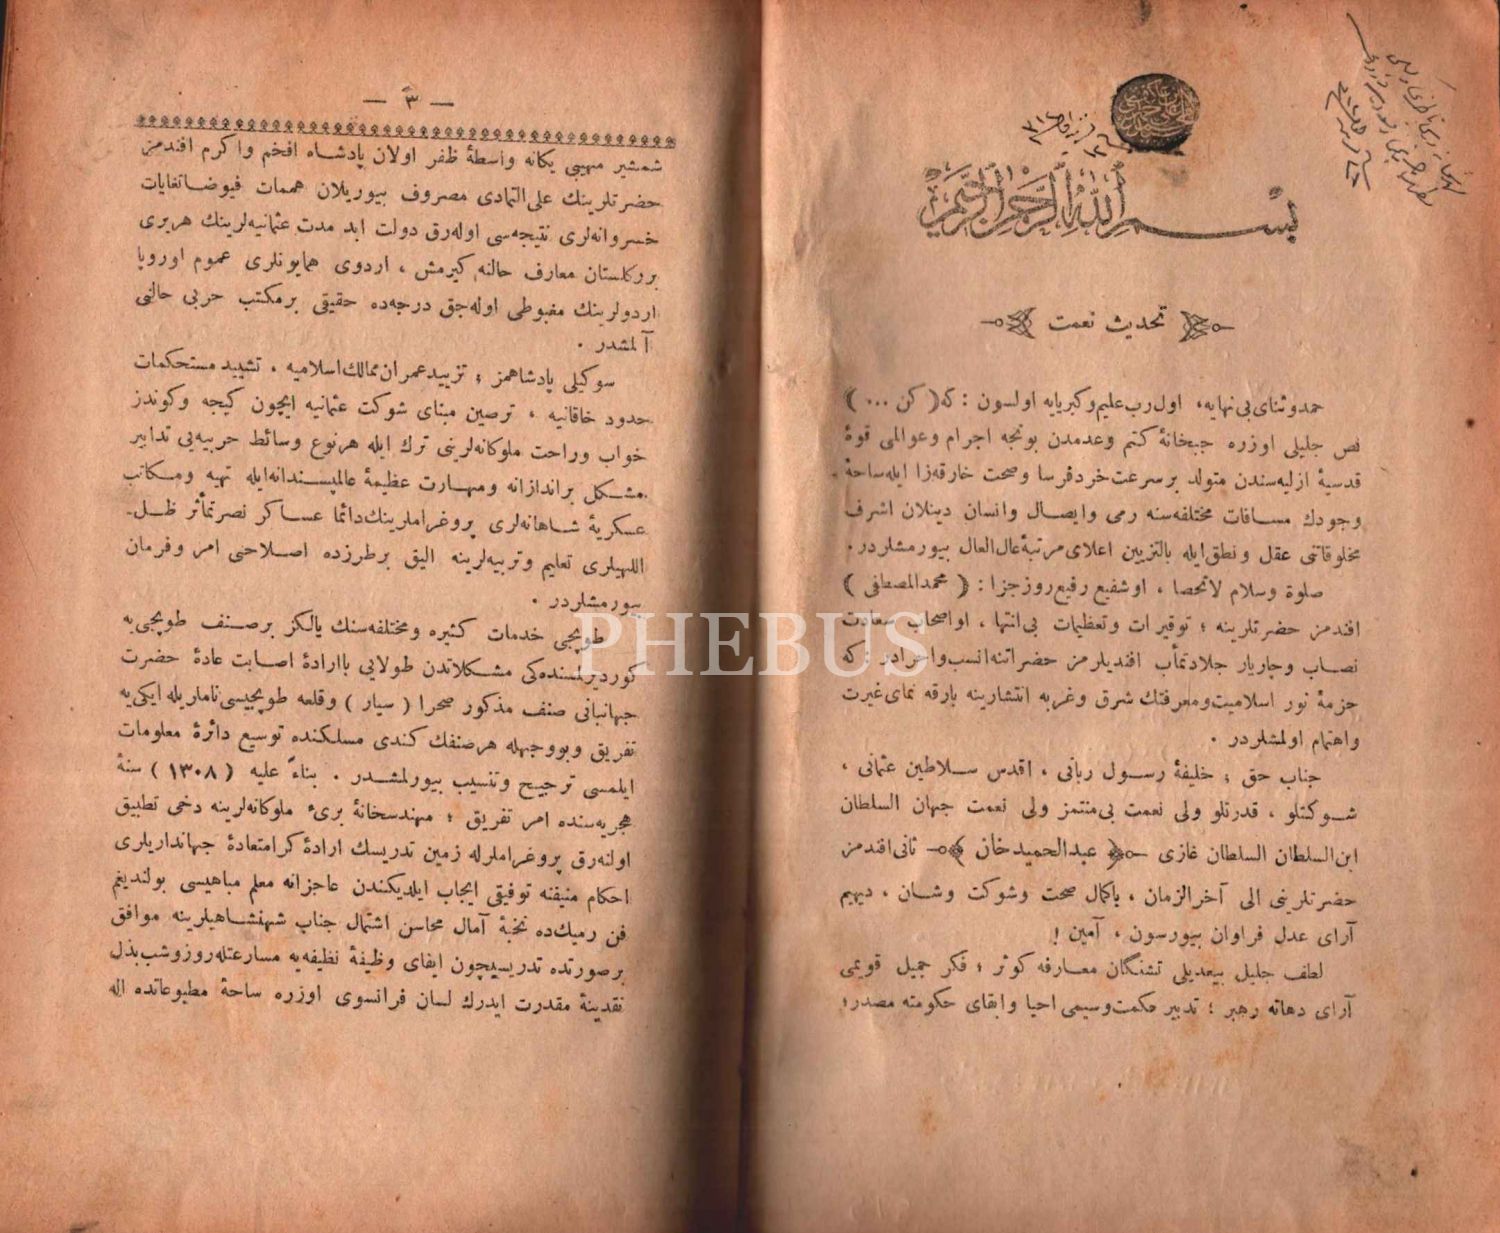 بسم الله الرحمن الرحيم
تحديث نعمت
حمدوثنای بی‌نهایه، اول‌رب‌علیم‌وکبریایه اولسون : که ( کن ... )
نص جلیلی اوزره جبخانهٔ کتم وعدمدن بونجه اجرام وعوالمی قوهٔ
قدسیهٔ ازلیه‌سندن متولد برسرعت خردفرسا وصحت خارقه‌زا ایله‌ساحهٔ
وجودك مسافات مختلفه‌سنه رمی وایصال وانسان دینلان اشرف
مخلوقاتی عقل ونطق‌ایله بالتزیین اعلای‌مرتبهٔ‌عال‌العال بیورمشلردر.
صلوة وسلام لاتحصا ، اوشفیع‌رفیع‌روزجزا : ( محمدالمصطفی )
افندمز حضرتلرینه ؛ توقیرات وتعظیمات بی‌انتها ، اواصحاب سعادت
نصاب وچاریار جلادتمآب افندیلرمز حضراتنه‌انسب‌واحرادر : که
حزمهٔ نور اسلامیت‌ومعرفتك شرق وغربه انتشارینه بارقه نمای‌غیرت
واهتمام اولمشلردر .
جناب حق ؛ خلیفهٔ رسول ربانی ، اقدس سلاطین عثمانی ،
شوکتلو ، قدرتلو ولی نعمت بی‌منتمز ولی نعمت جهان السلطان
ابن‌السلطان السلطان غازی عبدالحمیدخان ثانی‌افندمز
حضرتلرینی الی آخرالزمان ، باکمال صحت وشوکت وشان ، دیهیم
آرای عدل فراوان بیورسون ، آمین !
لطف جلیل بیعدیلی تشنگان معارفه کوثر ؛ فکر جمیل قویمی
آرای دهاته رهبر ؛ تدبیر حکمت‌وسیمی احیا وابقای حکومته مصدر؛
— ٣ —
شمشیر مهیبی یکانه واسطهٔ ظفر اولان پادشاه افخم واکرم افندمز
حضرتلرینك علی‌التمادی مصروف بیوریلان هممات فیوضاتغایات
خسروانه‌لری نتیجه‌سی اوله‌رق دولت ابد مدت عثمانیه‌لرینك هربری
بررکلستان معارف حالنه کیرمش ، اردوی همایونلری عموم اوروپا
اردولرینك مغبوطی اوله‌جق درجه‌ده حقیقی برمکتب حربی حالنی
آلمشدر .
سوکیلی پادشاهمز ؛ تزیید عمران‌ممالك‌اسلامیه ، تشیید مستحکمات
حدود خاقانیه ، ترصین مبنای شوکت عثمانیه ایچون کیجه وکوندز
خواب وراحت ملوکانه‌لرینی ترك ایله هرنوع وسائط حربیه‌یی تدابیر
مشکل براندازانه ومهارت عظیمهٔ عالمپسندانه‌ایله تهیه ومکاتب
عسکریهٔ شاهانه‌لری پروغراملرینك‌دائما عساکر نصرتمأثر ظل‌ـ
اللهیلری تعلیم وتربیه‌لرینه الیق برطرزده اصلاحنی امر وفرمان
بیورمشلردر .
طوپجی خدمات کثیره ومختلفه‌سنك یالکز برصنف طوپجی‌یه
کوردیرلمسنده‌کی مشکلاتدن طولایی باارادهٔ اصابت عادهٔ حضرت
جهانبانی صنف مذکور صحرا ( سیار ) وقلعه طوپجیسی نامار‌یله ایکی‌یه
تفریق وبووجهله هرصنفك کندی مسلکنده توسیع دائرهٔ معلومات
ایلمسی ترجیح وتنسیب بیورلمشدر . بناءً علیه ( ١٣٠٨ ) سنهٔ
هجریه‌سنده امر تفریق ؛ مهندسخانهٔ بریٔ ملوکانه‌لرینه دخی تطبیق
اولنه‌رق پروغراملرله زمین تدریسك ارادهٔ کرامتعادهٔ جهانداریلری
احکام منیفنه توفیقی ایجاب ایلدیکندن عاجزانه معلم مباهیسی بولندیغم
فن رمیك‌ده نخبهٔ آمال محاسن اشتمال جناب شهنشاهیلرینه موافق
برصورتده تدریسیچون ایفای وظیفهٔ نظیفه‌یه مسارعتله‌روزوشب‌بذل
نقدینهٔ مقدرت ایدرك لسان فرانسوی اوزره ساحهٔ مطبوعاتده اله
PHEBUS